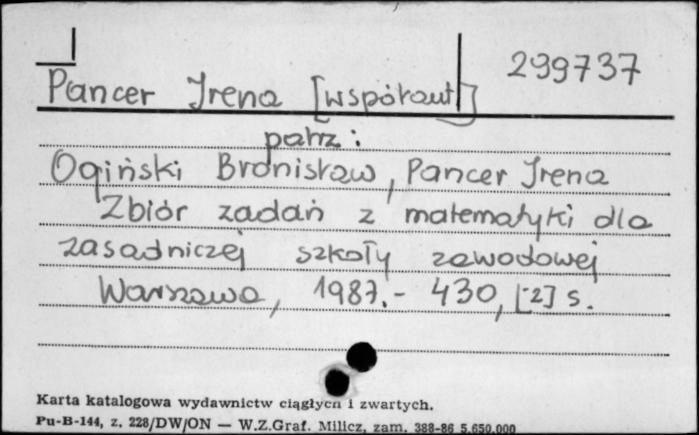 299737
Pancer Irena [współaut]
patrz:
Ogiński Bronisław, Pancer Irena
Zbiór zadań z matematyki dla
zasadniczej szkoły zawodowej
Warszawa, 1987.- 430, [2] s.
Karta katalogowa wydawnictw ciągłych i zwartych.
Pu-B-144, z. 228/DW/ON — W.Z.Graf. Milicz, zam. 388-86 5.650.000